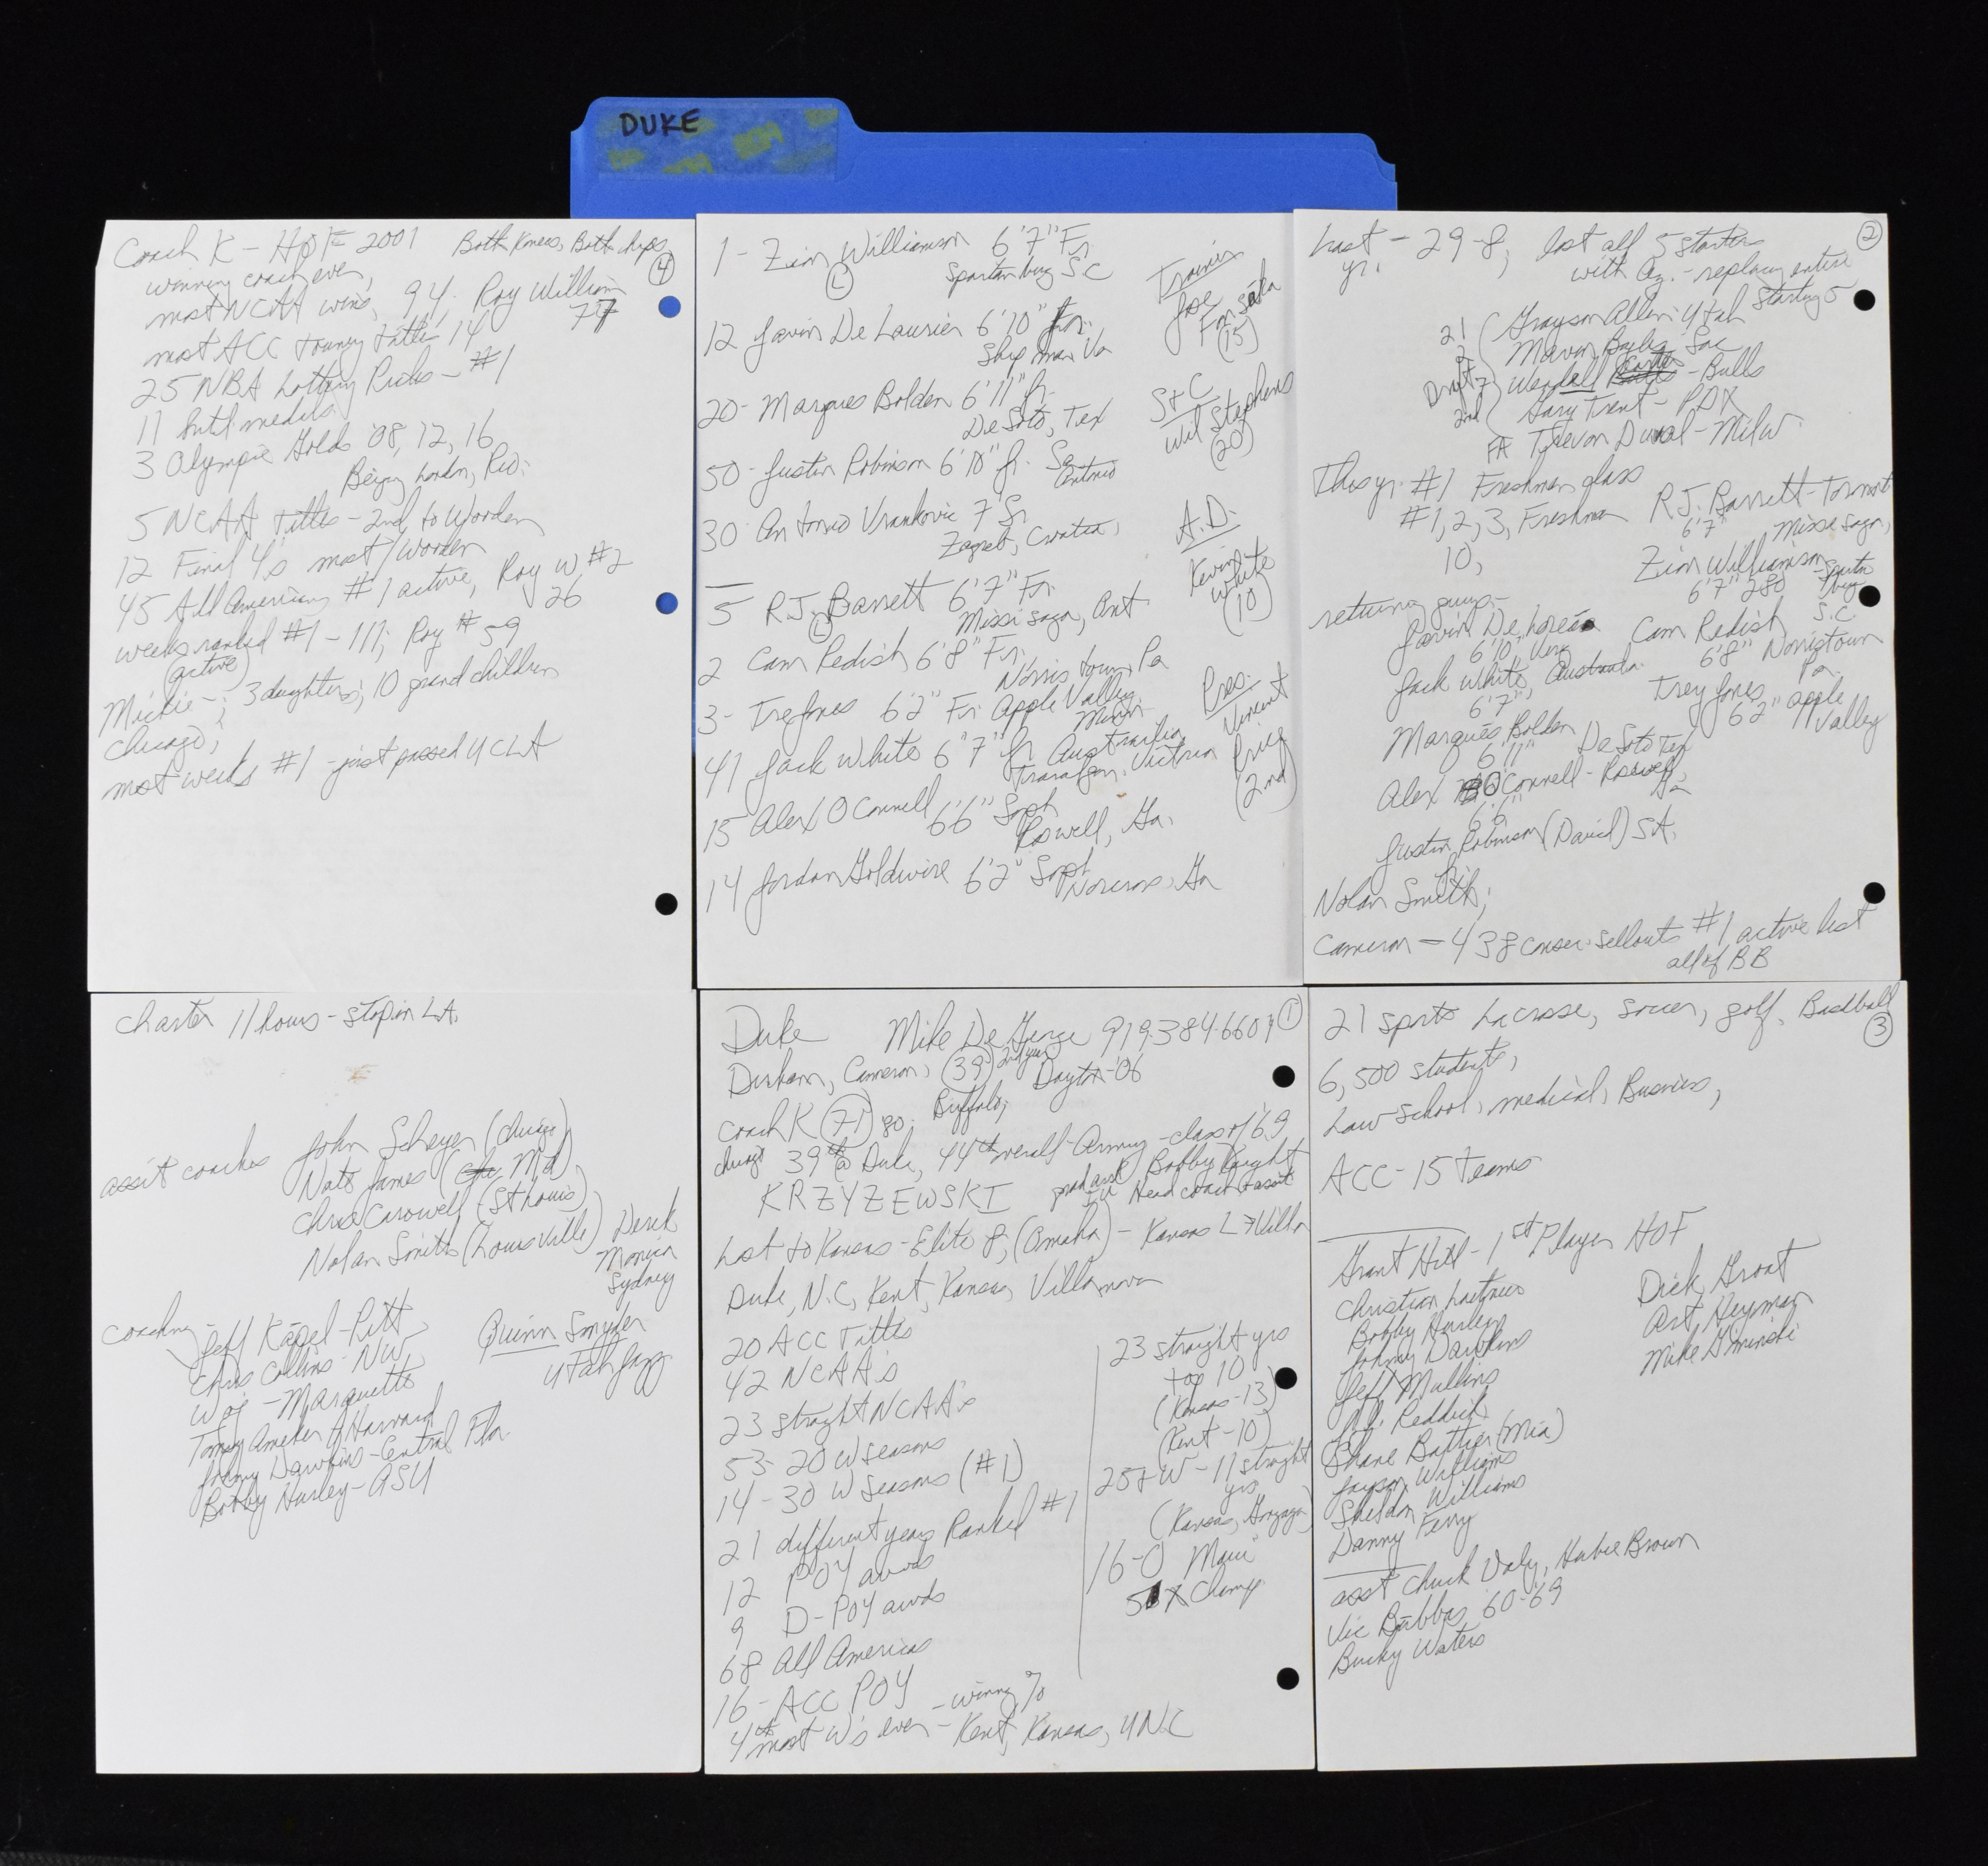 DUKE
Coach K - HOF 2001 Both Knees, Both hips
④
winning coach ever,
most NCAA wins, 94, Roy William
77
most ACC tourney titles 14
25 NBA Lottery Picks - #1
11 Intl medals
3 Olympic Golds '08, 12, 16
Beijing, London, Rio.
5 NCAA titles - 2nd to Wooden
12 Final 4s most / Wooden
45 All Americans #1 active, Roy W #2
26
weeks ranked #1 - 111; Roy # 59
(active)
Mickie -; 3 daughters; 10 grand children
Chicago;
most weeks #1 - just passed UCLA
1 - Zion Williamson 6'7" Fr.
(L) Spartanburg SC
12 Javin De Laurier 6'10" Jr.
Shipman Va
20 - Marques Bolden 6'11" Jr.
De Soto, Tex
50 - Justin Robinson 6'10" Jr. San
Antonio
30 Antonio Vrankovic 7' Sr
Zagreb, Croatia,
5 R.J. Barrett 6'7" Fr.
(L) Missisaga, Ont
2 Cam Redish 6'8" Fr.
Norristown, Pa
3 - Tre Jones 6'2" Fr. Apple Valley,
Minn.
41 Jack White 6'7" Jr Australia
Traralgon, Victoria
15 Alex O Connell
6'6" Soph
Roswell, Ga.
14 Jordan Goldwire 6'2" Soph
Norcross, Ga
Trainer
Jose
Fonseka
(15)
S+C
Will Stephens
(20)
A.D.
Kevin
White
(10)
Pres.
Vincent
Price
(2nd)
②
Last - 29-8, lost all 5 starters
yr. with Az. - replacing entire
starting 5
21 Grayson Allen - Utah
2 Marvin Bagley Sac
Draft 7 Wendall Carter - Bulls
2nd Gary Trent - PDX
FA Trevon Duval - Milw.
This yr. #1 Freshman class
#1, 2, 3, Freshman R.J. Barrett - Toronto
6'7" Missisaga,
10, Zion Williamson
6'7" 280 Spartanburg
S.C
returning group -
Javin De Laurier
6'10" Virg Cam Redish
6'8" Norristown
Pa
Jack White, Australia
6'7" Trey Jones
6'2" apple
Valley
Marques Bolden
6'11" De Soto Tex
Alex O'Connell - Roswell,
6'6" Ga
Justin Robinson (David) SA.
Nolan Smith;
Cameron - 438 consec. sellouts #1 active list
all of BB
Charter 11 hours - stop in LA.
assit coaches John Scheyer (Chicago)
Nate James (Md)
Chris Carowell (St Louis)
Nolan Smith (Louisville) Derek
Monica
Sydney
coaching -
Jeff Kapel - Pitt
Chris Collins - NW
Woj - Marquette
Tommy Ameker Harvard
Johnny Dawkins - Central Fla.
Bobby Hurley - ASU
Quinn Snyder
Utah Jazz
①
Duke Mike De George 919.384.6601
Durham, Cameron, (39) 2nd year Dayton '06
Coach K (71) 80. Buffalo;
Chicago 39th @ Duke, 44th overall - Army - class of '69
KRZYZEWSKI grad asst Bobby Knight
IU Head coach + assit
Lost to Kansas - Elite 8, (Omaha) - Kansas L → Villa
Duke, N.C, Kent, Kansas, Villanova
20 ACC Titles
42 NCAA's
23 straight NCAA's
53 - 20 W seasons
14 - 30 W seasons (#1)
21 different years Ranked #1
12 POY awds
9 D-POY awds
68 All Americas
16 - ACC POY
4th most W's ever - winning %
- Kent, Kansas, UNC
23 straight yrs
top 10
(Kansas - 13)
(Kent - 10)
25+ W - 11 straight
yrs
(Kansas, Gonzaga)
16-0 Maui
5 X Champ.
③
21 sports Lacrosse, soccer, golf, Basdball
6,500 students,
Law School, medical, Business,
ACC - 15 Teams
Grant Hill - 1st Player HOF
Christian Laetner
Bobby Hurley
Johnny Dawkins
Jeff Mullins
J.J. Reddick
Shane Battier (Mia)
Jayson Williams
Sheldon Williams
Danny Ferry
Dick Groat
Art Heyman
Mike Gminski
asst Chuck Daly, Hubie Brown
Vic Bubbas 60-69
Bucky Waters